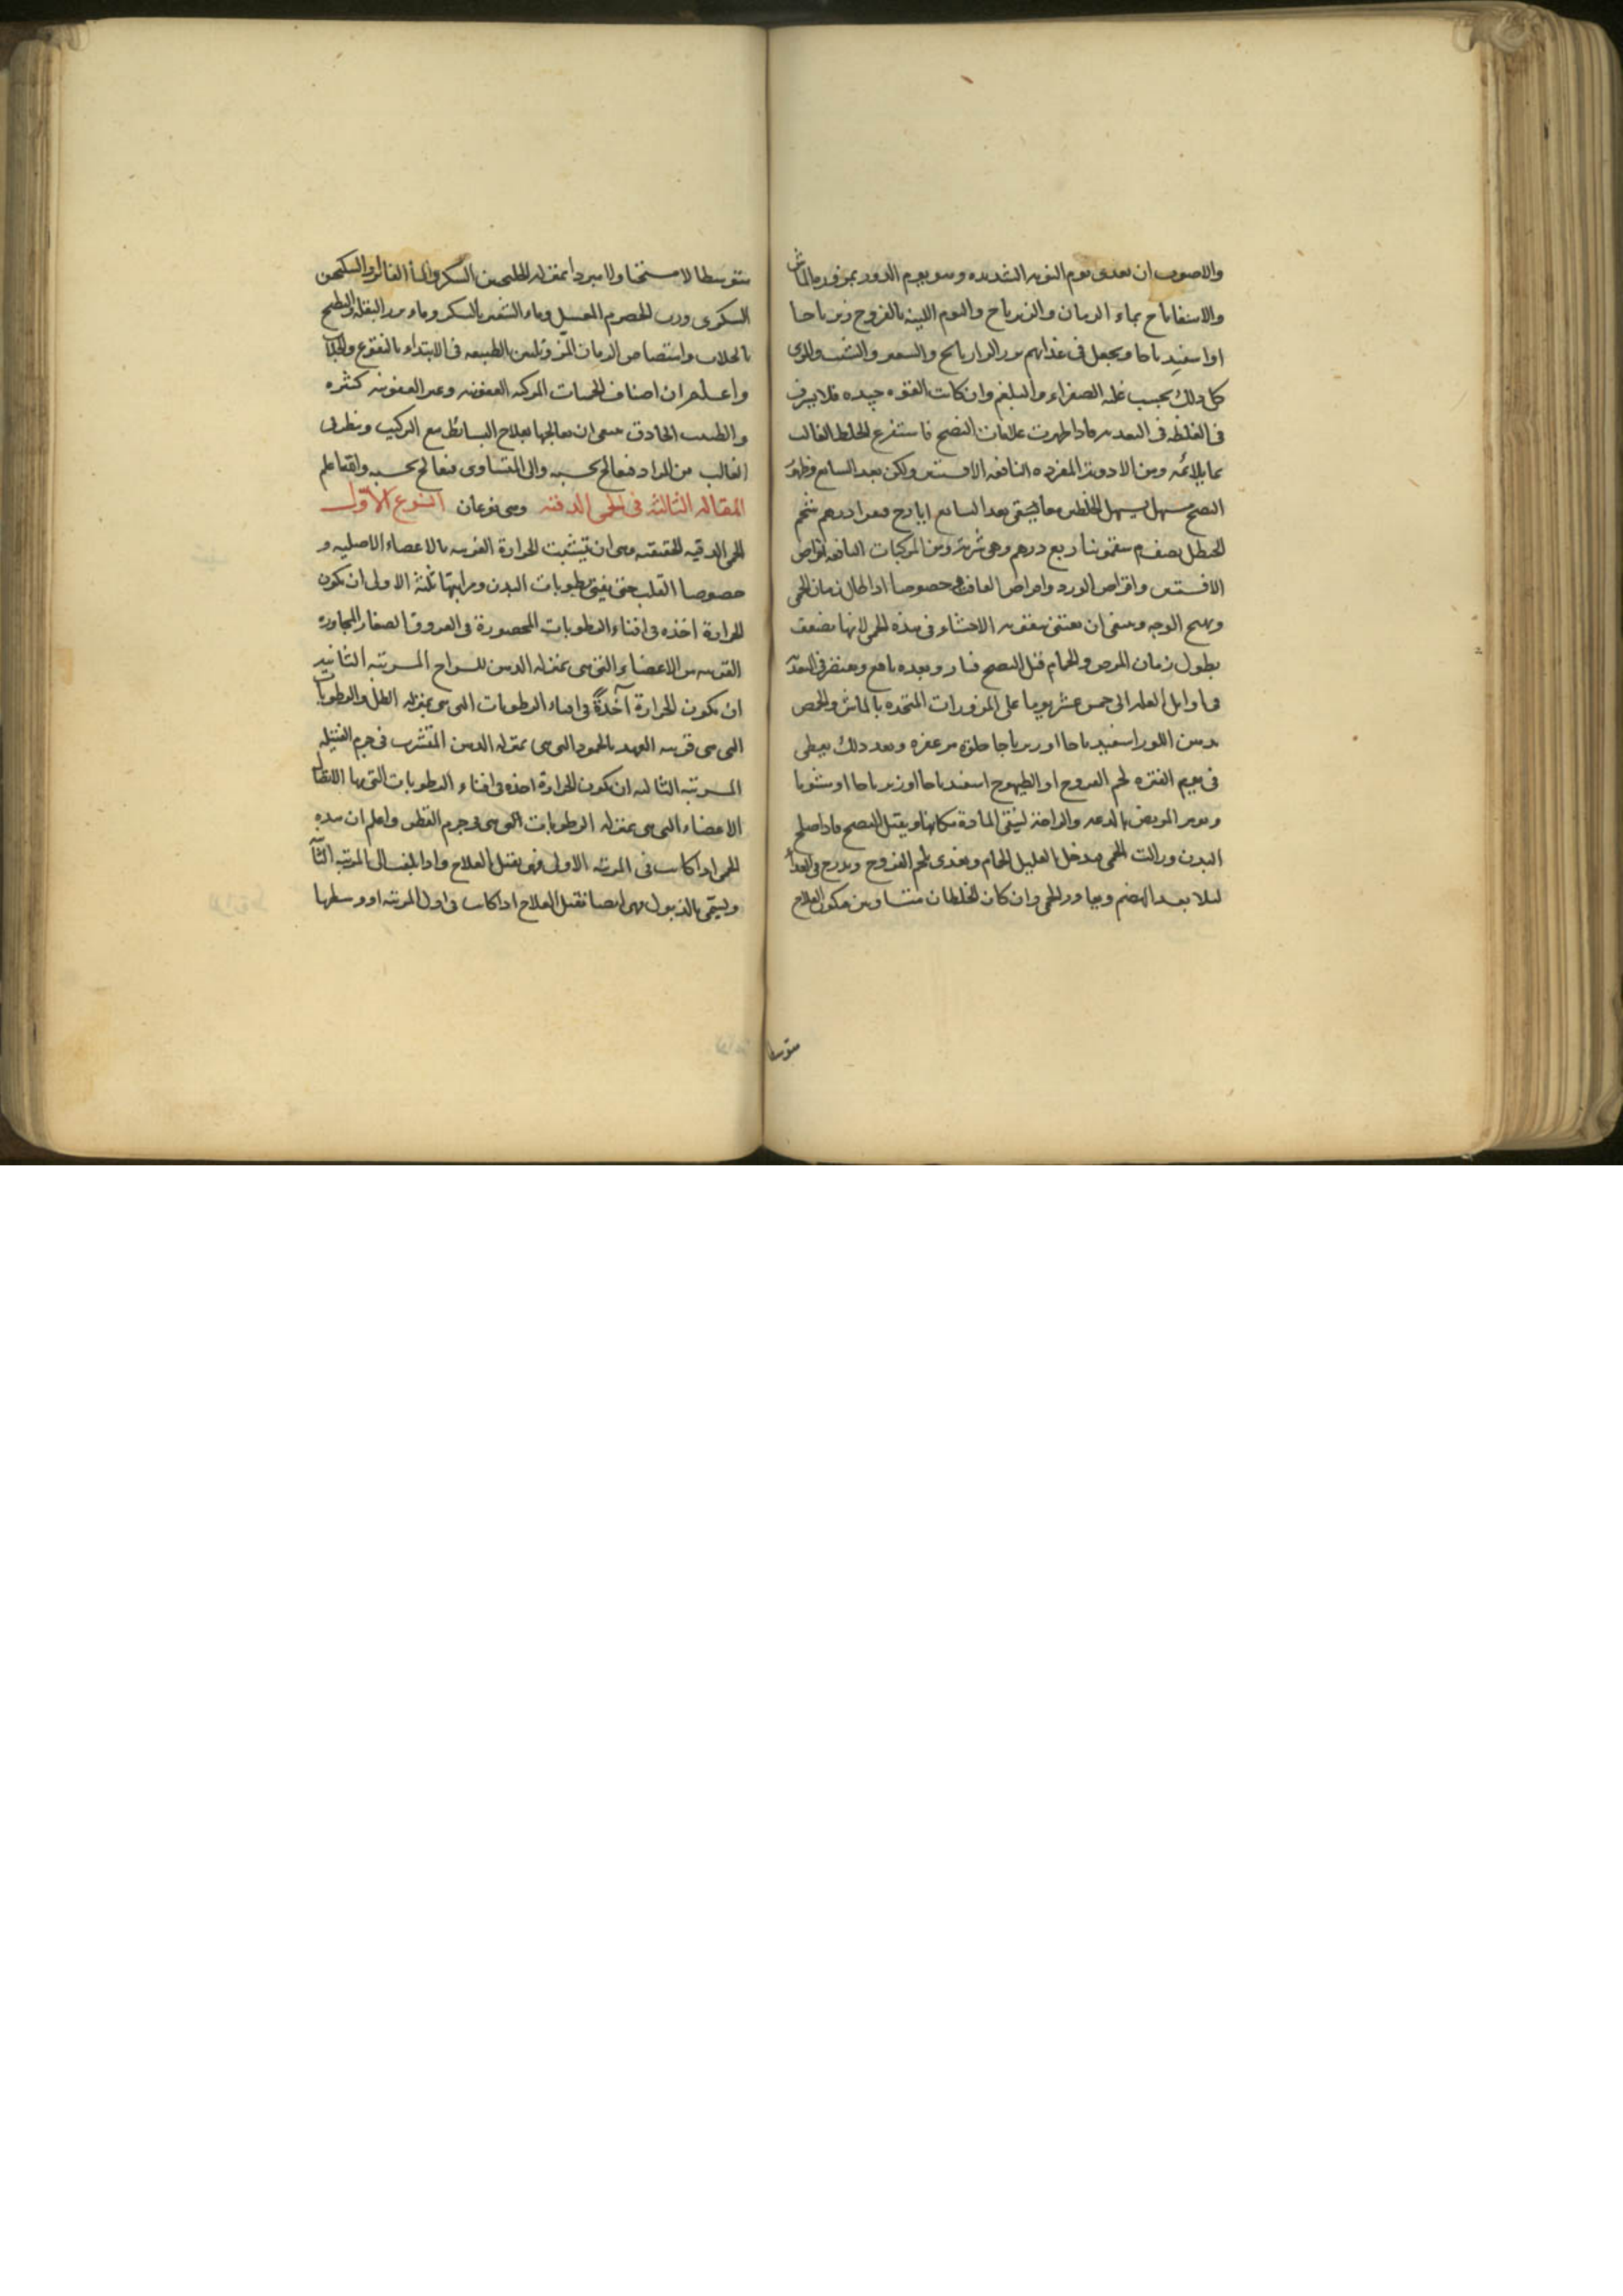 والاصوب ان يغدى يوم النوبه الشديده وهو يوم الدور بمزوره بالماش
والاسفاناخ بماء الرمان والزرباج واليوم اللينه بالفروج زيرباجا
او اسفيدباجا ويجعل فى غذائهم بزر الرازيانج والشبت
كل ذلك بحسب غلبه الصفراء والبلغم وان كانت القوه جيده فلا يزف
فى الغلظه فى التغديه فاذا ظهرت علامات النضج فاستفرغ الخلط الغالب
بما يلائمه ومن الادويه المفرده النافعه الافسنتين ولكن بعد السابع وظهور
النضج مسهل يسهل الخلطين معا يسقى بعد السابع ايارج فيقرا درهم شحم
الحنظل نصف سقمونيا ربع درهم وهى شربه ومن المركبات النافعه اقراص
الافسنتين واقراص الورد واقراص الغافت خصوصا اذا طال زمان الحمى
وتهيج الوجه وينبغى ان يعتنى بتقويه الاحشاء فى هذه الحمى لانها تضعف
بطول زمان المرض والحمام قبل النضج ضار وبعده نافع ويقتصر فى التغذيه
فى اوايل العله الى خمس عشر يوما على المزورات المتخذه بالماش والحمص
بدهن اللوز اسفيدباجا او زيرباجا حلوه مزعفره وبعد ذلك يعطى
فى يوم الفتره لحم الفروج او الطيهوج اسفيدباجا او زيرباجا او مشويا
ويومر المريض بالدعه والراحة ليبقى المادة مكانها ويقبل النضج فاذا صلح
البدن وزالت الحمى يدخل العليل الحمام ويغدى بلحم الفروج ويدرج فى الغذاء
لئلا يفسد الهضم ويعاود الحمى وان كان الخلطان متساويين فيكون العلاج
متوسطا
متوسطا لا مسخنا ولا مبردا بمنزله الخلنجبين السكرى والماء الفاتر والسكنجبين
السكرى ورب الحصرم المعسل وماء الشعير بالسكر وماء بزر البقله والبطيخ
بالجلاب وامتصاص الرمان المز وتليين الطبيعه فى الابتداء بالنقوع والجلاب
واعلم ان اصناف الحميات المركبه العفونيه وغير العفونيه كثيره
والطبيب الحاذق ينبغى ان يعالجها بعلاج البسائط مع التركيب وينظر الى
الغالب من المواد فيعالج بحسبه والى المتساوى فيعالج بحسبه والله اعلم
المقاله الثالثه فى الحمى الدقيه وهى نوعان النوع الاول
الحمى الدقيه الحقيقيه وهى ان تتشبث الحرارة الغريبه بالاعضاء الاصليه و
خصوصا القلب حتى يفنى رطوبات البدن ومراتبها ثلثة الاولى ان يكون
الحرارة اخذه فى افناء الرطوبات المحصورة فى العروق الصغار المجاوره
القريبه من الاعضاء التى هى بمنزله الدهن للسراج المرتبه الثانيه
ان يكون الحرارة آخذةً فى افناء الرطوبات التى هى بمنزله الطل والرطوبات
التى هى قريبه العهد بالجمود التى هى بمنزله الدهن المتشرب فى جرم الفتيله
المرتبه الثالثه ان يكون الحرارة اخذه فى افناء الرطوبات التى بها اتصال
الاعضاء التى هى بمنزله الرطوبات التى هى فى جرم القطن واعلم ان هذه
الحمى اذا كانت فى المرتبه الاولى فهى يقبل العلاج واذا بلغت الى المرتبه الثانيه
ويسمى بالذبول فهى ايضا تقبل العلاج اذا كانت فى اول المرتبه او وسطها